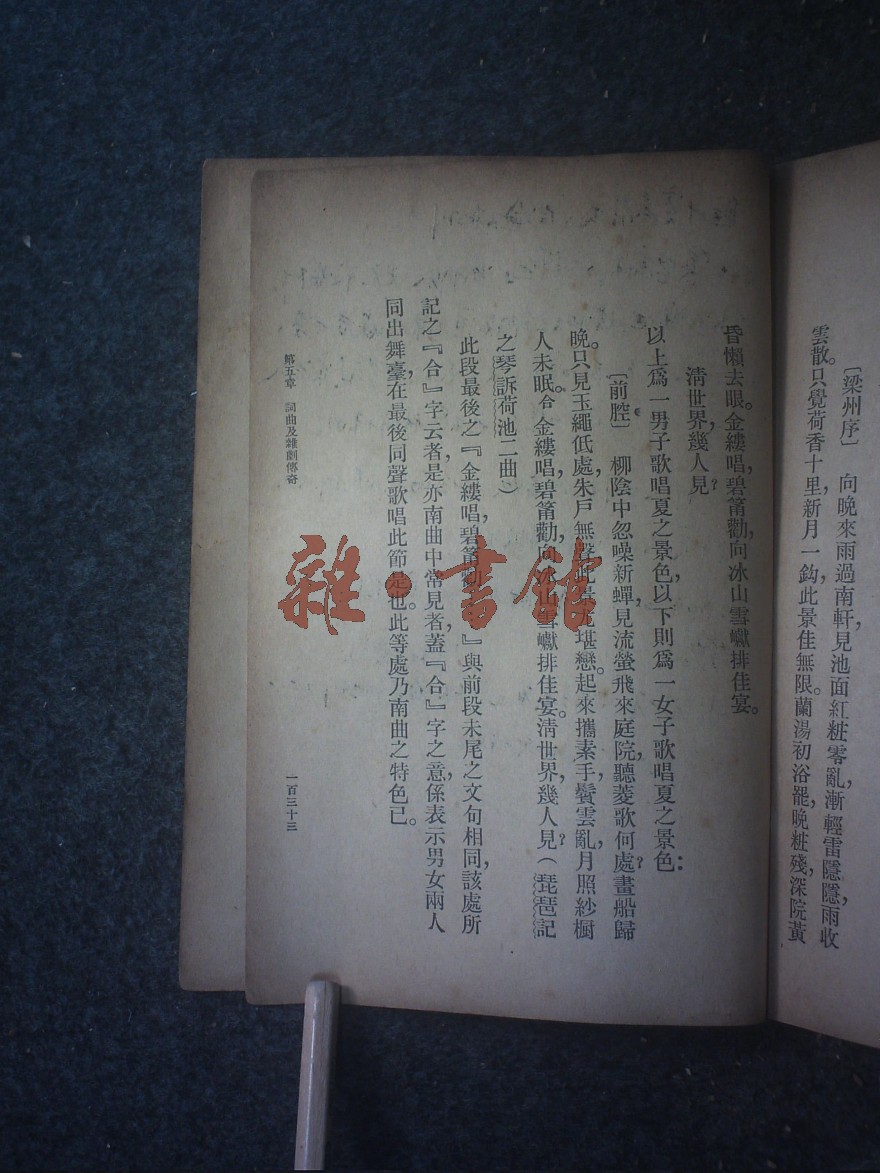 〔梁州序〕　向晚來雨過南軒，見池面紅粧零亂，漸輕雷隱隱，雨收
雲散。只覺荷香十里，新月一鈎，此景佳無限。蘭湯初浴罷，晚粧殘，深院黃
昏懶去眠。金縷唱，碧筩勸，向冰山雪巘排佳宴。
清世界，幾人見？
以上爲一男子歌唱夏之景色，以下則爲一女子歌唱夏之景色：
〔前腔〕　柳陰中忽噪新蟬，見流螢飛來庭院，聽菱歌何處？畫船歸
晚。只見玉繩低處，朱戶無聲，此景尤堪戀。起來攜素手，鬢雲亂，月照紗橱
人未眠。合金縷唱，碧筩勸，向冰山雪巘排佳宴。清世界，幾人見？（琵琶記
之琴訴荷池二曲）
此段最後之『金縷唱，碧筩勸，』與前段末尾之文句相同，該處所
記之『合』字云者，是亦南曲中常見者，蓋『合』字之意，係表示男女兩人
同出舞臺，在最後同聲歌唱此節是也。此等處乃南曲之特色已。
第五章　詞曲及雜劇傳奇
一百三十三
雜·書館